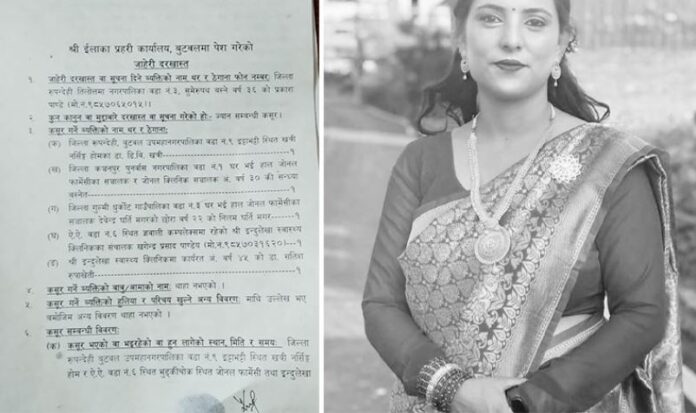 श्री ईलाका प्रहरी कार्यालय, बुटवलमा पेश गरेको
जाहेरी दरखास्त
१. जाहेरी दरखास्त वा सूचना दिने व्यक्तिको नाम थर र ठेगाना फोन नम्बर: जिल्ला
रुपन्देही तिलोत्तमा नगरपालिका वडा नं.३, बस्ने वर्ष ३६ को प्रकाश
पाण्डे (मो.नं.९८५७०६५०१५)।
२. कुन कानुन वा मुद्दाबारे दरखास्त वा सूचना गरेको हो:- ज्यान सम्बन्धी कसूर।
३. कसूर गर्ने व्यक्तिको नाम थर र ठेगाना:
(क) जिल्ला रूपन्देही, बुटवल उपमहानगरपालिका वडा नं.९ स्थित खत्री
नर्सिङ्ग होमका डा. डि.बि. खत्री----------१
(ख) जिल्ला कञ्चनपुर पुनर्वास नगरपालिका वडा नं.१ घर भई हाल जोनल
फार्मेसीका सञ्चालक र जोनल क्लिनिक सञ्चालक अं. वर्ष ३० की सन्ध्या
बस्नेत----------१
(ग) जिल्ला गुल्मी धुर्कोट गाउँपालिका वडा नं.४ घर भई हाल जोनल फार्मेसीका
सञ्चालक देवेन्द्र घर्ति मगरको छोरा वर्ष २२ को निलम घर्ति मगर-------१
(घ) ऐ.ऐ. वडा नं.६ स्थित ज्ञवाली कम्प्लेक्समा रहेको श्री इन्दुलेखा स्वास्थ्य
क्लिनिकका संचालक खगेन्द्र प्रसाद पाण्डेय (मो.नं.९८५७०३१६२०)---१
(ङ) श्री इन्दुलेखा स्वास्थ्य क्लिनिकमा कार्यरत अं. वर्ष ४५ को डा. सतिश
रुपाखेती----------१
४. कसूर गर्ने व्यक्तिको बाबु/आमाको नाम: थाहा नभएको।
५. कसूर गर्ने व्यक्तिको हुलिया र परिचय खुल्ने अन्य विवरण: माथि उल्लेख भए
बमोजिम अन्य विवरण थाहा नभएको।
६. कसूर सम्बन्धी विवरण:
(क) कसूर भएको वा भइरहेको वा हुन लागेको स्थान, मिति र समय: जिल्ला
रूपन्देही बुटवल उपमहानगरपालिका वडा नं.९ स्थित खत्री नर्सिङ्ग
होम र ऐ.ऐ. वडा नं.६ स्थित जोनल फार्मेसी तथा इन्दुलेखा